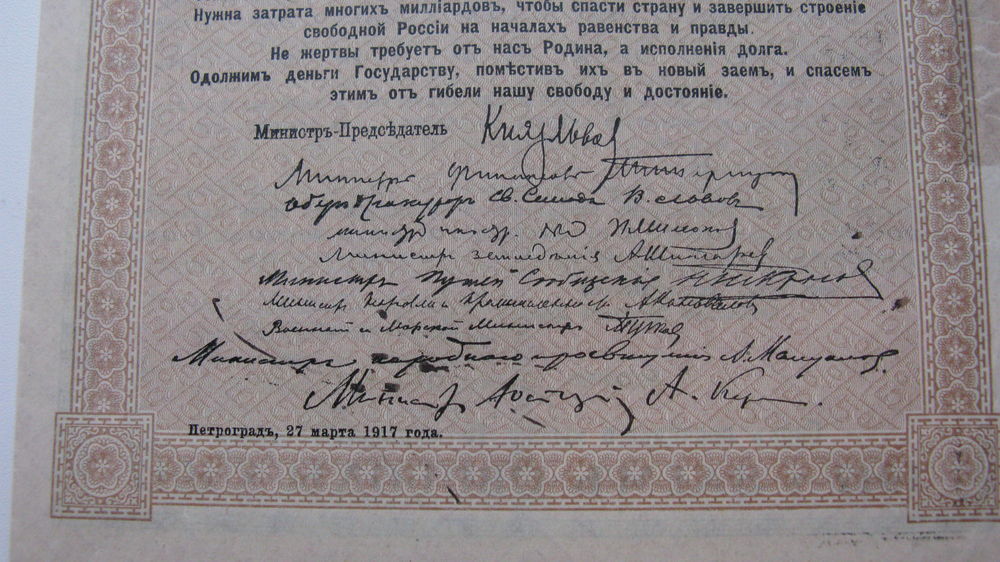 Нужна затрата многихъ милліардовъ, чтобы спасти страну и завершить строеніе
свободной Россіи на началахъ равенства и правды.
Не жертвы требуетъ отъ насъ Родина, а исполненія долга.
Одолжимъ деньги Государству, помѣстивъ ихъ въ новый заемъ, и спасемъ
этимъ отъ гибели нашу свободу и достояніе.
Министръ-Предсѣдатель Князь Львов
Министръ Финансовъ М Терещенко
Оберъ Прокурор Св. Синода В. Львов
министр иностр. дѣл П Милюков
Министр земледѣлія А Шингарев
Министръ Путей Сообщенія Н Некрасов
Министр торговли и промышленности А Коновалов
Военный и Морской Министръ А Гучков
Министръ народнаго просвѣщенія А. Мануилов.
Министр Юстиціи А. Керен
Петроградъ, 27 марта 1917 года.